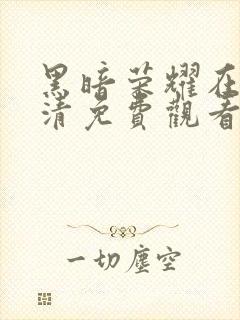 黑暗荣耀在
清免費觀看
一切塵空